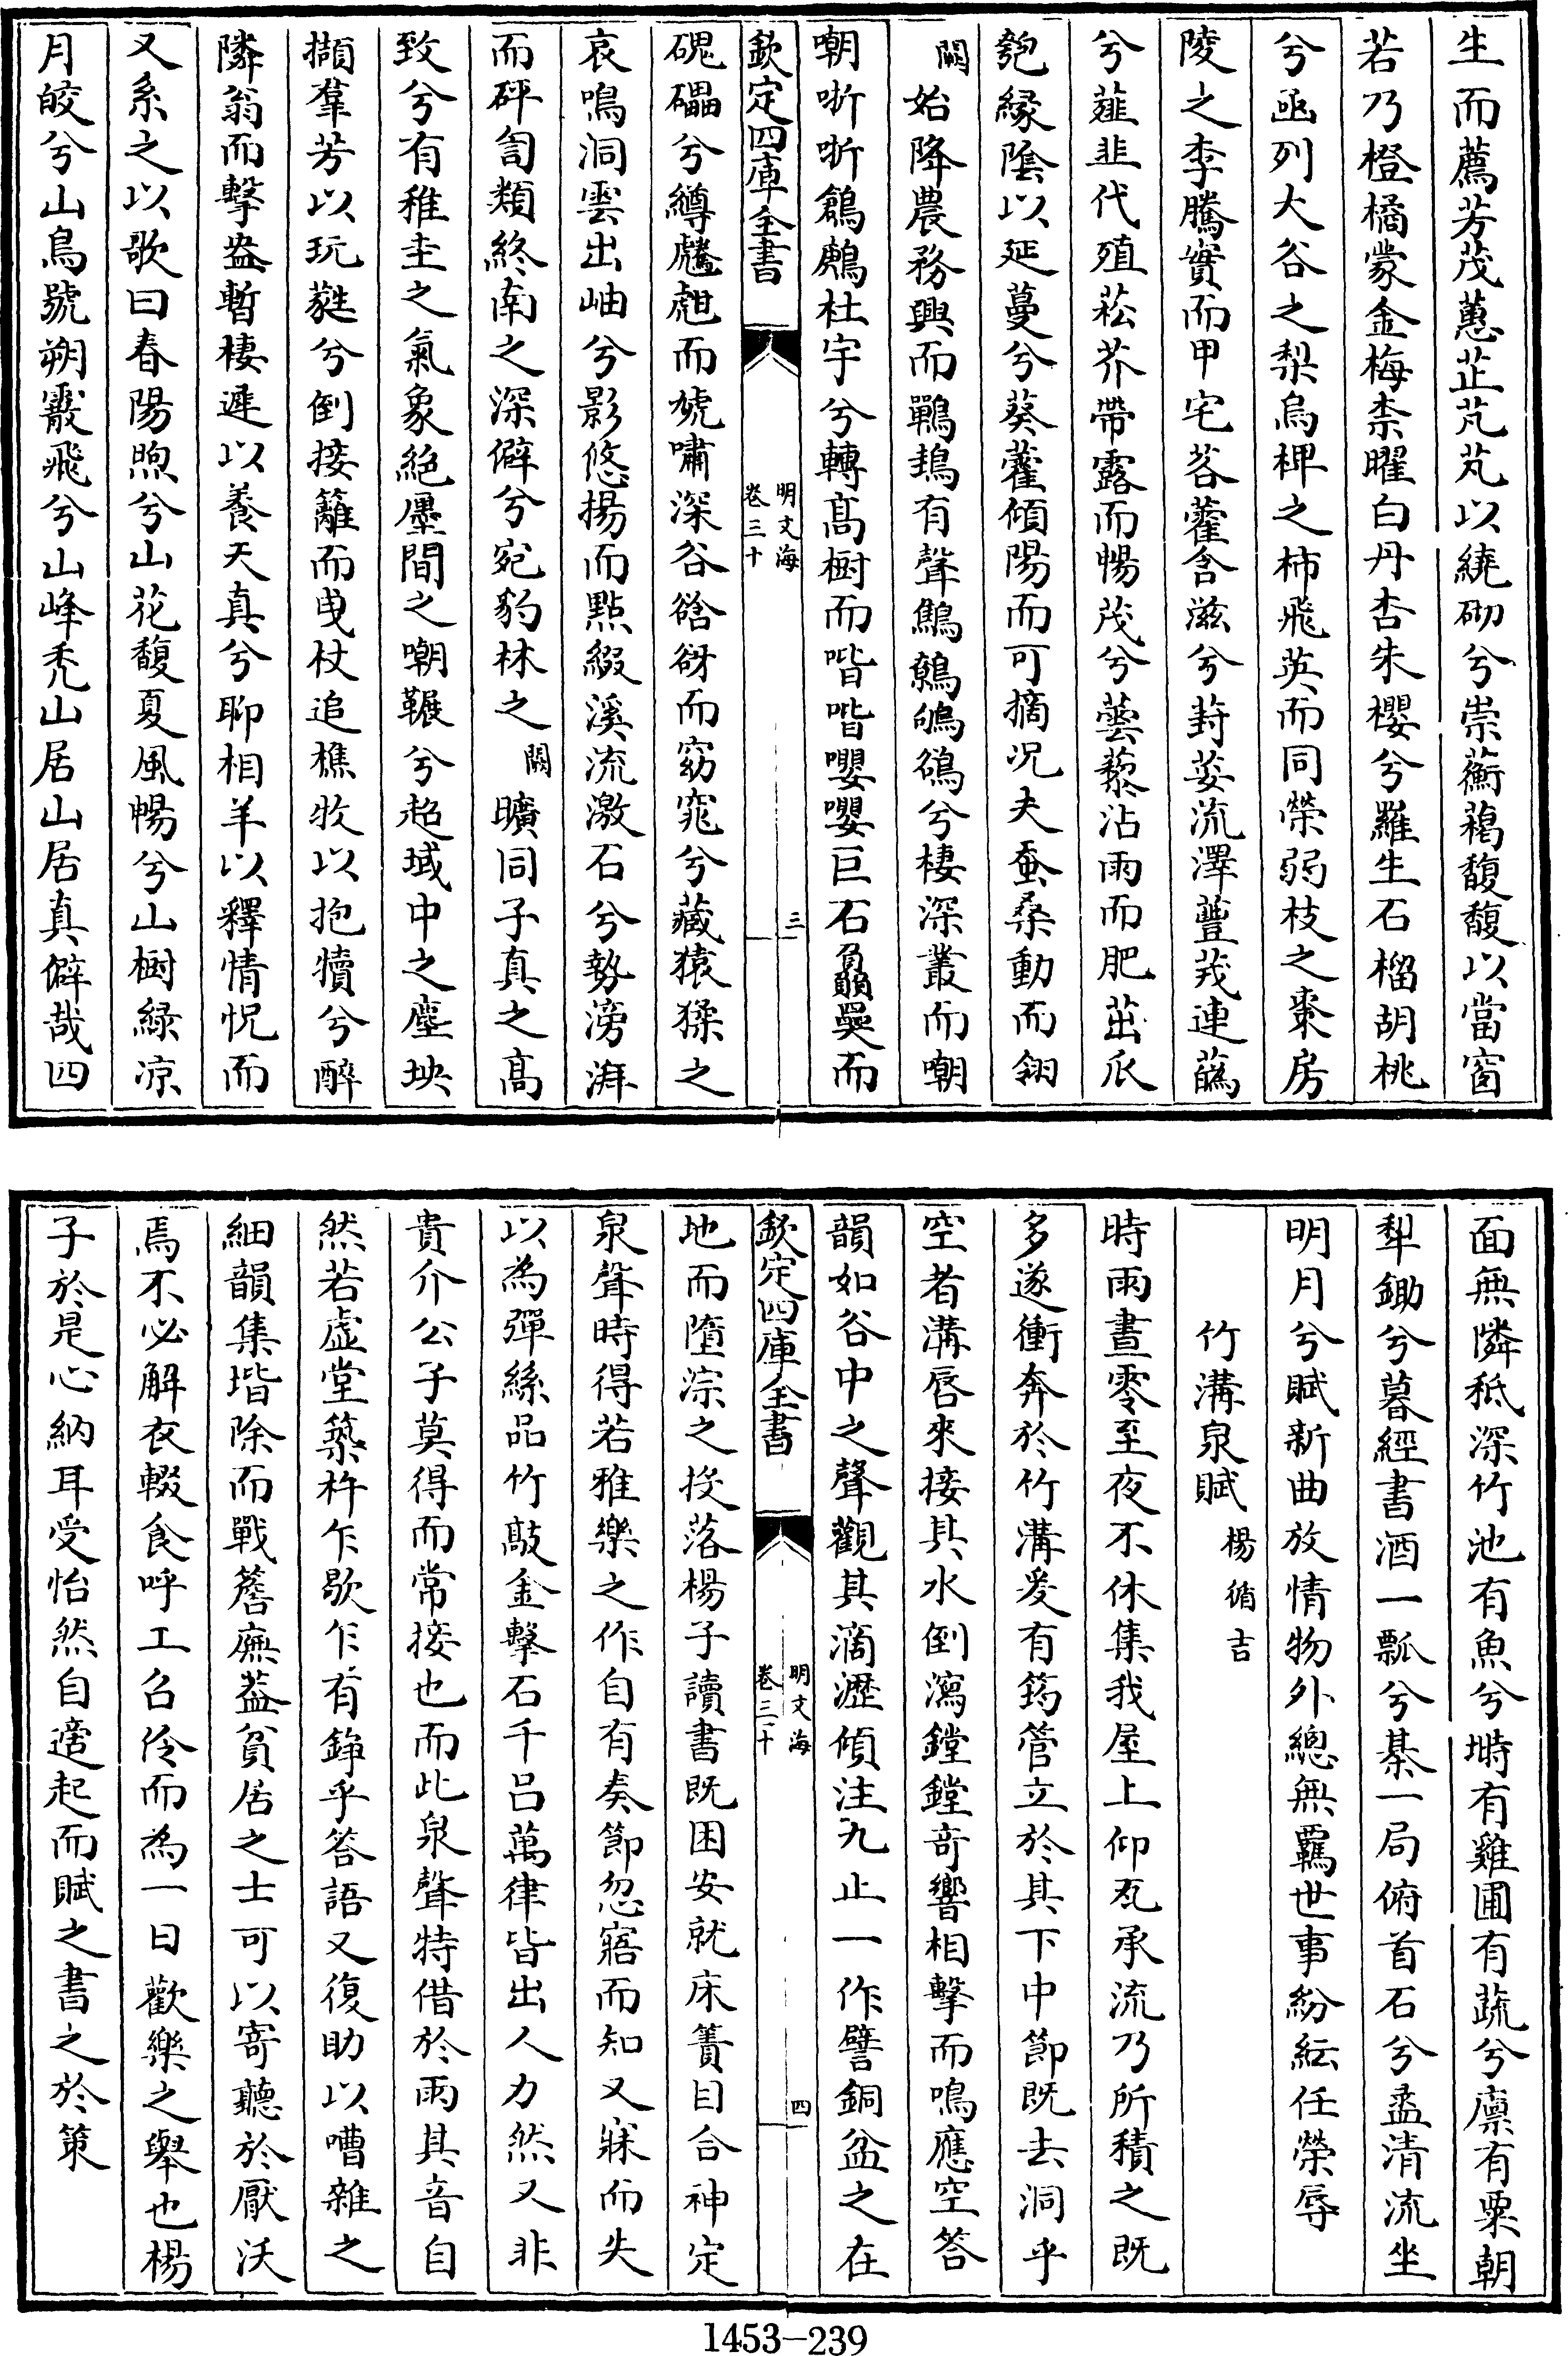 生而薦芳茂蕙芷芃芃以繞砌兮崇蘅藒馥馥以當窗
若乃橙橘蒙金梅柰曜白丹杏朱櫻兮羅生石榴胡桃
兮函列大谷之梨烏椑之柿飛英而同榮弱枝之棗房
陵之李騰實而甲宅茖藿含滋兮葑葵流澤薑茙連蘤
兮薤韭代殖菘芥帶露而暢茂兮蕓藜沾雨而肥茁瓜
匏緣陰以延蔓兮葵藿傾陽而可摘况夫蚕桑動而翎
闕始降農務興而鷤鴂有聲鷦鷯鴝鵒兮棲深叢而嘲
嘲哳哳鶬鷓杜宇兮轉高樹而喈喈嚶嚶巨石贔屭而
欽定四庫全書
明文海
卷三十
三
磈礧兮罇甒虺而虓嘯深谷谽谺而窈窕兮藏猿猱之
哀鳴洞雲出岫兮影悠揚而點綴溪流激石兮勢滂湃
而砰訇類終南之深僻兮宛豹林之闕曠同子真之高
致兮有稚圭之氣象絕㕓間之嘲囅兮超域中之塵坱
擷羣芳以玩蕤兮倒接籬而曳杖追樵牧以抱犢兮醉
隣翁而擊盎暫棲遲以養天真兮聊相羊以釋情怳而
又系之以歌曰春陽煦兮山花馥夏風暢兮山樹綠凉
月皎兮山鳥號朔霰飛兮山峰禿山居山居真僻哉四
面無隣秪深竹池有魚兮塒有雞圃有蔬兮廪有粟朝
犁鋤兮暮經書酒一瓢兮棊一局俯首石兮盥清流坐
明月兮賦新曲放情物外總無羈世事紛紜任榮辱
竹溝泉賦 楊循吉
時雨晝零至夜不休集我屋上仰瓦承流乃所積之既
多遂衝奔於竹溝爰有筠管立於其下中節既去洞乎
空者溝唇來接其水倒瀉鏜鏜奇響相擊而鳴應空答
韻如谷中之聲觀其滴瀝傾注九止一作譬銅盆之在
欽定四庫全書
明文海
卷三十
四
地而墮淙之投落楊子讀書既困安就床簀目合神定
泉聲時得若雅樂之作自有奏節忽寤而知又寐而失
以為彈絲品竹敲金擊石千呂萬律皆出人力然又非
貴介公子莫得而常接也而此泉聲特借於雨其音自
然若虛堂築杵乍歇乍有錚乎答語又復助以嘈雜之
細韻集堦除而戰簷廡葢貧居之士可以寄聽於厭沃
焉不必解衣輟食呼工召伶而為一日歡樂之舉也楊
子於是心納耳受怡然自適起而賦之書之於策
1453—239